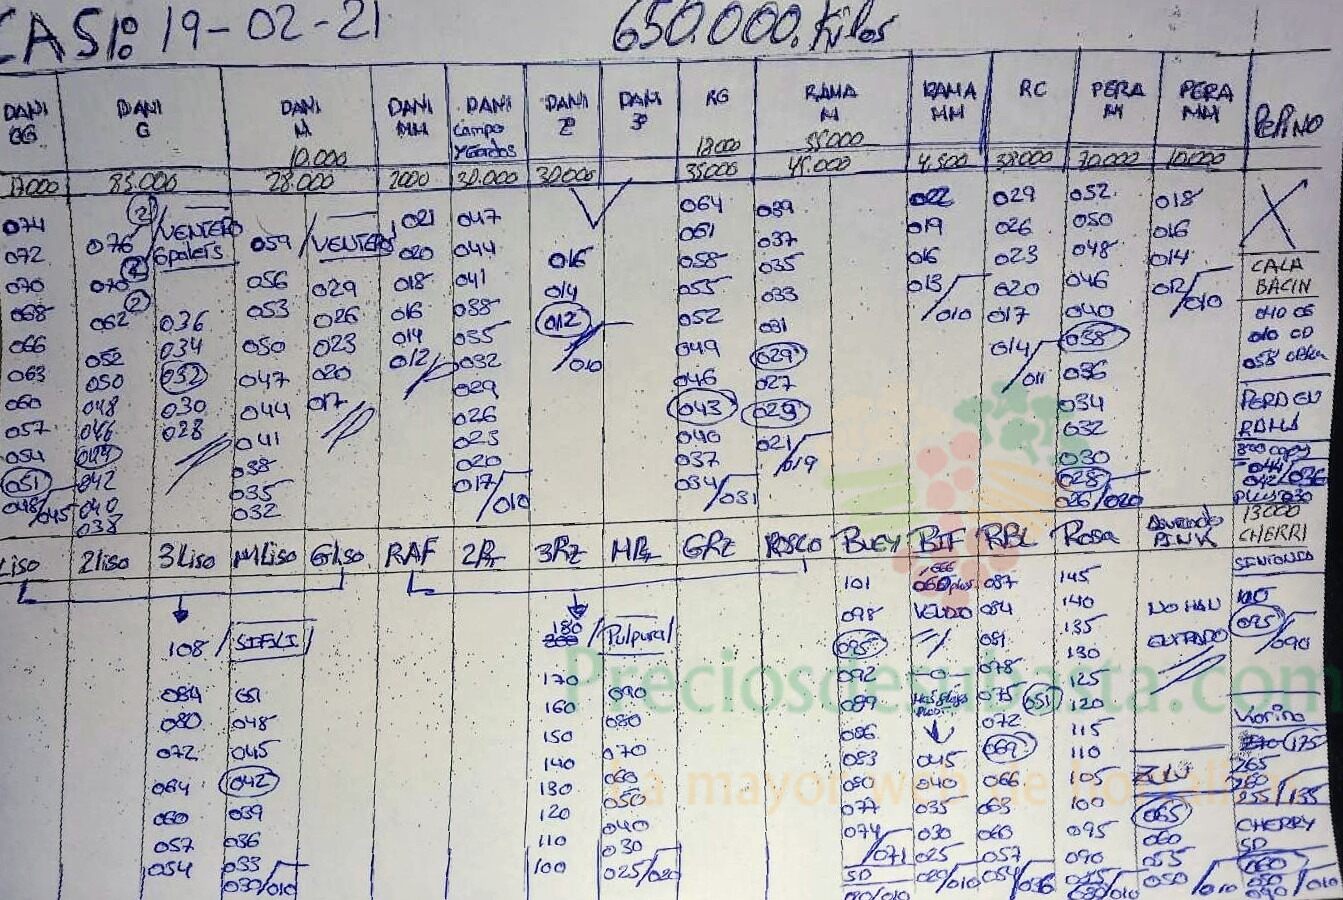 CASI: 19-02-21 650.000.Kilos
DANI GG DANI G DANI M 10.000 DANI MM DANI Campo y Gordos DANI 2ª DANI 3ª RG 12000 RAMA M 55.000 RAMA MM RC PERA M PERA MM PEPINO
17000 85.000 28.000 2000 30.000 30.000 35000 45.000 4.500 38000 70.000 10.000
074 072 070 068 066 063 060 057 054 051 048/045
2 076 2 070 2 062 052 050 048 046 044 042 040 038
VENTERO 6 palets 036 034 032 030 028
059 056 053 050 047 044 041 038 035 032
VENTERO 029 026 023 020 017
021 020 018 016 014 012
047 044 041 038 035 032 029 026 023 020 017/010
016 014 012 /010
064 061 058 055 052 049 046 043 040 037 034/031
039 037 035 033 031 029 027 021/019
022 019 016 013/010
029 026 023 020 017 014/011
052 050 048 046 040 038 036 034 032 030 028 026/020
018 016 014 012/010
CALA BACIN
040 CG
010 CD
PERA EN RAMA
044
042/036
13000
CHERRI
Liso 2Liso 3Liso MLiso GLiso RAF 2Rz 3Rz MRz GRz ROSCO BUEY BIF RBL Rosa Asurcado PINK
108/
084 080 072 064 060 057 054
051 048 045 042 039 036 033 030/010
180 /Pulpura/
170 160 150 140 130 120 110 100
090 080 070 060 050 040 030 025/020
101 098 095 092 089 086 083 080 077 074/071
SD
090/010
VENDIO
045 040 035 030 025 020/010
087 084 081 078 075 051 072 069 066 063 060 057 054/036
145 140 135 130 125 120 115 110 105 100 095 090 085 080/010
NO HAN ENTRADO
065 060 055 050/010
100 095/090
175
265 260 255/135
CHERRY
SD
060
050
/010
Preciosdesubasta.com